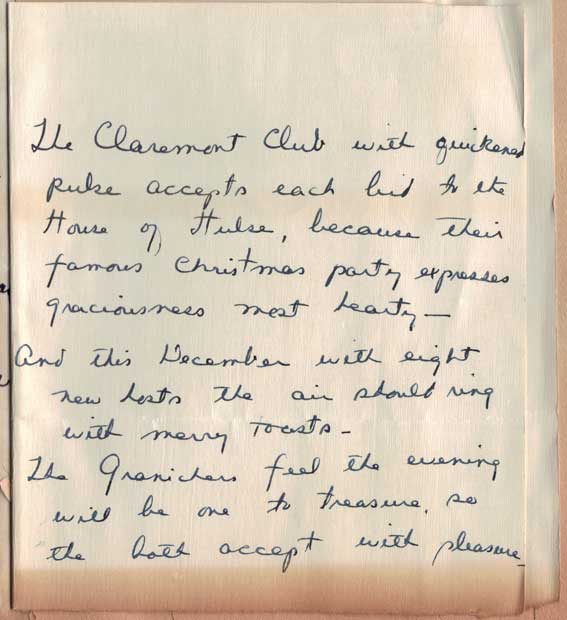 The Claremont Club with quickened
pulse accepts each bid to the
House of Hulse, because their
famous Christmas party expresses
graciousness most hearty—
And this December with eight
new hosts the air should ring
with merry toasts—
The Granichers feel the evening
will be one to treasure, so
the both accept with pleasure—